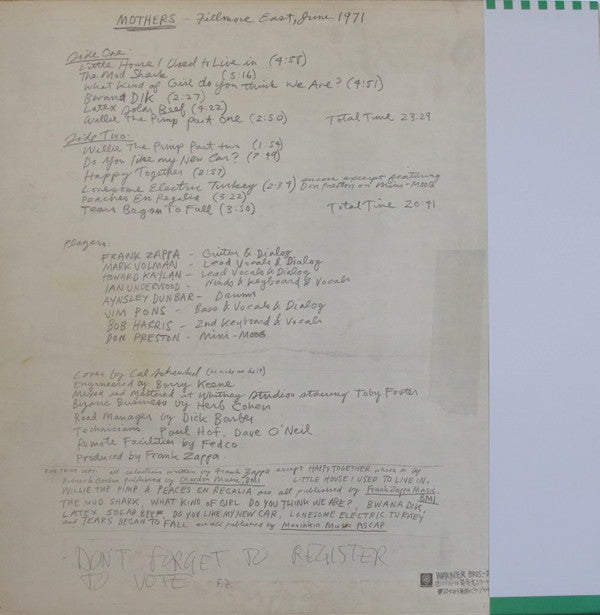 MOTHERS - Fillmore East, June 1971
Side One:
Little House I Used to Live in (4:58)
The Mud Shark (5:16)
What Kind of Girl do you think we Are? (4:51)
Bwana DIK (2:27)
Latex Solar Beef (4:22)
Willie The Pimp part one (2:50) Total Time 23:29
Side Two:
Willie The Pimp Part two (1:54)
Do You like my New Car? (7:49)
Happy Together (2:57)
Lonesome Electric Turkey (2:34) encore excerpt featuring Don Preston on Mini-MOOG
Peaches En Regalia (3:22)
Tears Began To Fall (3:50) Total Time 20:41
Players:
FRANK ZAPPA - Guitar & Dialog
MARK VOLMAN - Lead Vocals & Dialog
HOWARD KAYLAN - Lead Vocals & Dialog
IAN UNDERWOOD - Winds & Keyboard & Vocals
AYNSLEY DUNBAR - Drums
JIM PONS - Bass & Vocals & Dialog
BOB HARRIS - 2nd Keyboard & Vocals
DON PRESTON - Mini-MOOG
Cover by Cal Schenkel
Engineered by Barry Keene
Mixed and Mastered at Whitney Studios starring Toby Foster
Bizarre Business by Herb Cohen
Road Manager by Dick Barber
Technicians Paul Hof, Dave O'Neil
Remote Facilities by Fedco
Produced by Frank Zappa
FINE PRINT DEPT. all selections written by Frank Zappa except HAPPY TOGETHER which is by
published by Chardon Music, BMI LITTLE HOUSE I USED TO LIVE IN,
WILLIE THE PIMP & PEACES EN REGALIA are all published by Frank Zappa Music, BMI
THE MUD SHARK, WHAT KIND OF GIRL DO YOU THINK WE ARE?, BWANA DIK,
LATEX SOLAR BEEF, DO YOU LIKE MY NEW CAR, LONESOME ELECTRIC TURKEY
and TEARS BEGAN TO FALL are all published by Munchkin Music ASCAP
DON'T FORGET TO REGISTER
TO VOTE F.Z.
WARNER BROS.